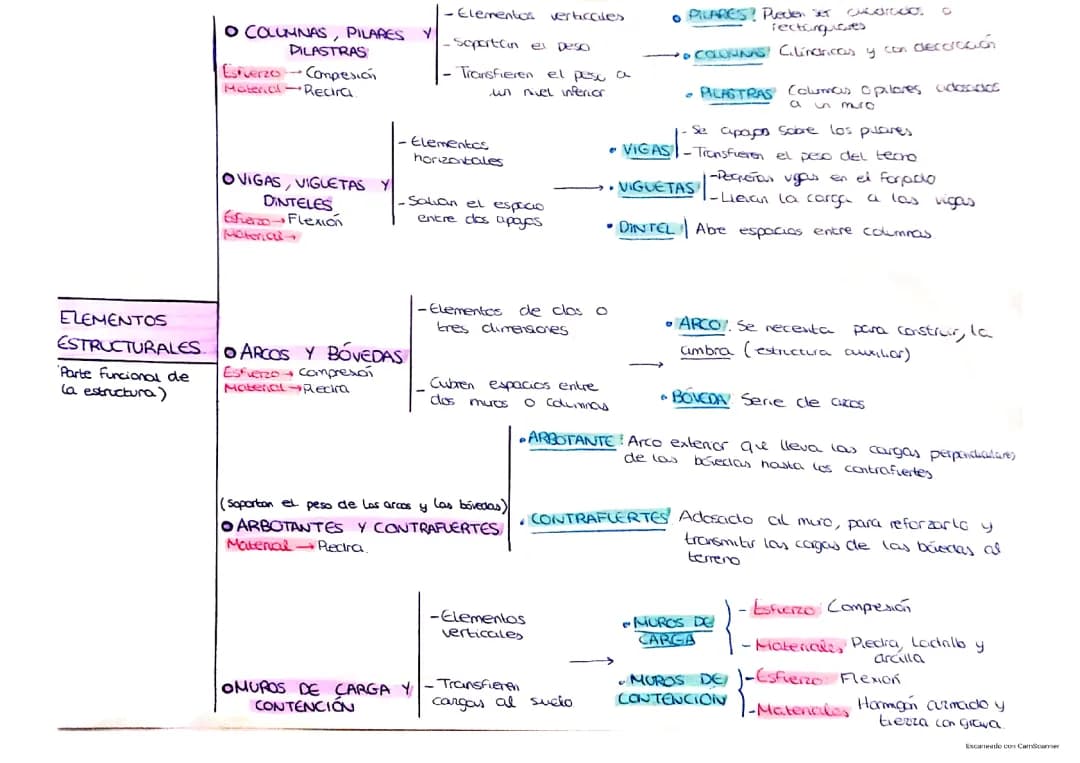 ELEMENTOS
ESTRUCTURALES
(Parte funcional de
la estructura)
COLUMNAS, PILARES Y
PILASTRAS
Esfuerzo → Compesión
Material → Piedra.
- Elementos verticales
- Soportan el peso
- Transfieren el peso a
un nivel inferior
• PILARES: Pueden ser cuadrados o
rectangulares
→ • COLUMNAS: Cilíndricas y con decoración
• PILASTRAS: Columnas o pilares adosados
a un muro
VIGAS, VIGUETAS Y
DINTELES
Esfuerzo → Flexión
Material →
- Elementos
horizontales
- Salvan el espacio
entre dos apoyos
• VIGAS
- Se apoyan sobre los pilares
- Transfieren el peso del techo
→ • VIGUETAS
- Pequeñas vigas en el forjado
- Llevan la carga a las vigas
• DINTEL Abe espacios entre columnas
ARCOS Y BÓVEDAS
Esfuerzo → compresión
Material → Piedra
- Elementos de dos o
tres dimensiones
- Cubren espacios entre
dos muros o columnas
→
• ARCO: Se necesita para construir, la
cimbra (estructura auxiliar)
• BÓVEDA: Serie de arcos
(Soportan el peso de los arcos y las bóvedas)
ARBOTANTES Y CONTRAFUERTES
Material → Piedra.
• ARBOTANTE: Arco exterior que lleva las cargas perpendiculares
de las bóvedas hasta los contrafuertes
• CONTRAFUERTES Adosado al muro, para reforzarlo y
transmitir las cargas de las bóvedas al
terreno
MUROS DE CARGA Y
CONTENCIÓN
- Elementos
verticales
- Transfieren
cargas al suelo
→
• MUROS DE
CARGA
- Esfuerzo: Compesión
- Materiales Piedra, Ladrillo y
arcilla
• MUROS DE
CONTENCIÓN
- Esfuerzo: Flexión
- Materiales Hormigón armado y
tierra con grava.
Escaneado con CamScanner